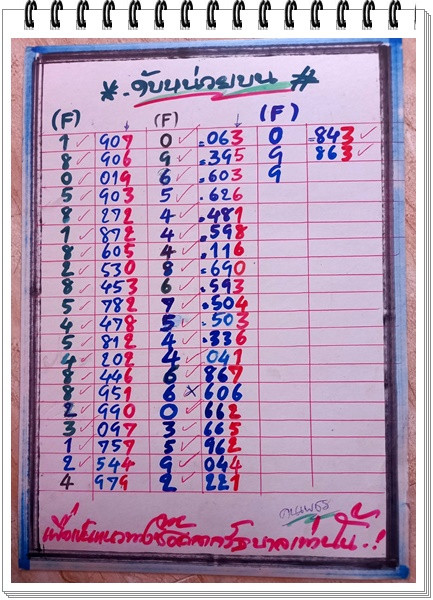 * ดับหน่วยบน #
(F) (F) (F)
1 907 0 063 0 843
8 906 9 395 9 863
0 019 6 603 9
5 903 5 626
8 272 4 481
1 872 4 598
8 605 4 116
2 530 8 690
8 453 6 593
5 782 7 504
4 478 5 503
5 812 4 336
4 202 4 041
8 446 6 867
8 951 6 × 606
2 990 0 662
3 097 3 665
1 757 5 962
2 544 9 044
4 979 2 221